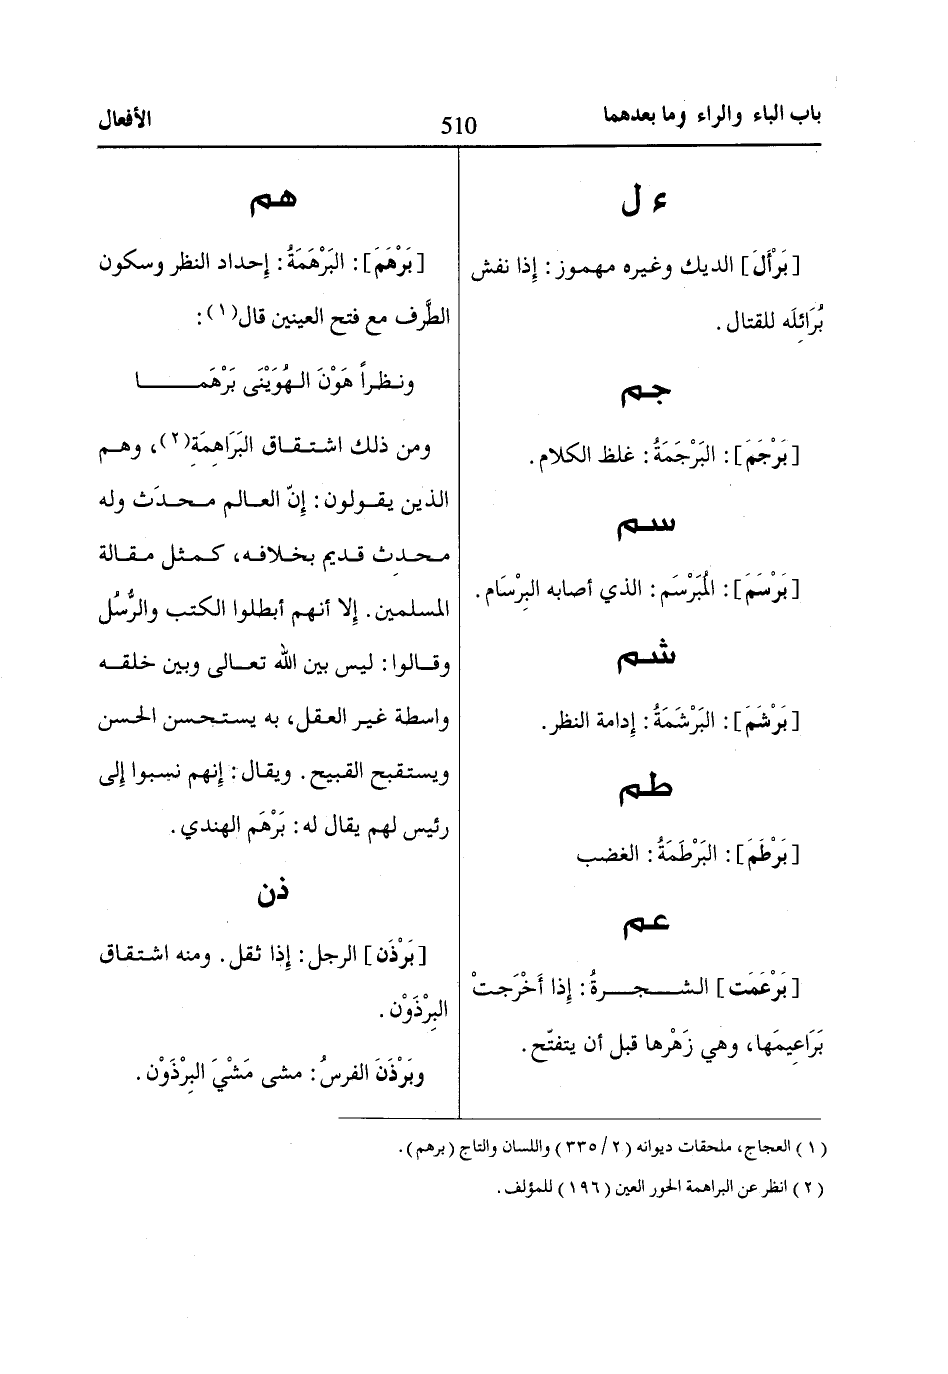 باب الباء والراء وما بعدهما
510
الأفعال
ء ل
[بَرْأَلَ] الديك وغيره مهموز: إذا نفش
بُرَائِلَه للقتال.
جم
[بَرْجَمَ]: البَرْجَمَةُ: غلظ الكلام.
سم
[بَرْسَمَ]: المُبَرْسَم: الذي أصابه البِرْسَام.
شم
[بَرْشَمَ]: البَرْشَمَةُ: إدامة النظر.
طم
[بَرْطَمَ]: البَرْطَمَةُ: الغضب
عم
[بَرْعَمَت] الشجرةُ: إذا أَخْرَجتْ
بَرَاعِيمَها، وهي زَهْرها قبل أن يتفتّح.
هم
[بَرْهَمَ]: البَرْهَمَةُ: إحداد النظر وسكون
الطَّرف مع فتح العينين قال(١):
ونظراً هَوْنَ الهُوَيْنَى بَرْهَمَا
ومن ذلك اشتقاق البَرَاهِمَة(٢)، وهم
الذين يقولون: إنّ العالم محدَث وله
محدِث قديم بخلافه، كمثل مقالة
المسلمين. إلا أنهم أبطلوا الكتب والرُّسُل
وقالوا: ليس بين الله تعالى وبين خلقه
واسطة غير العقل، به يستحسن الحسن
ويستقبح القبيح. ويقال: إنهم نسبوا إلى
رئيس لهم يقال له: بَرْهَم الهندي.
ذن
[بَرْذَن] الرجل: إذا ثقل. ومنه اشتقاق
البِرْذَوْن.
وبَرْذَنَ الفرسُ: مشى مَشْيَ البِرْذَوْن.
(١) العجاج، ملحقات ديوانه (٢/ ٣٣٥) واللسان والتاج (برهم).
(٢) انظر عن البراهمة الحور العين (١٩٦) للمؤلف.